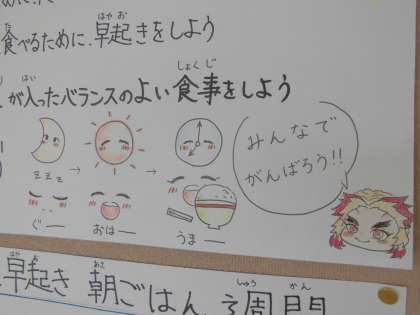 食べるために、早起きをしよう
が入ったバランスのよい食事をしよう
zzz
ぐー
おはー
うまー
みんなで
がんばろう!!
早起き 朝ごはん 3週間